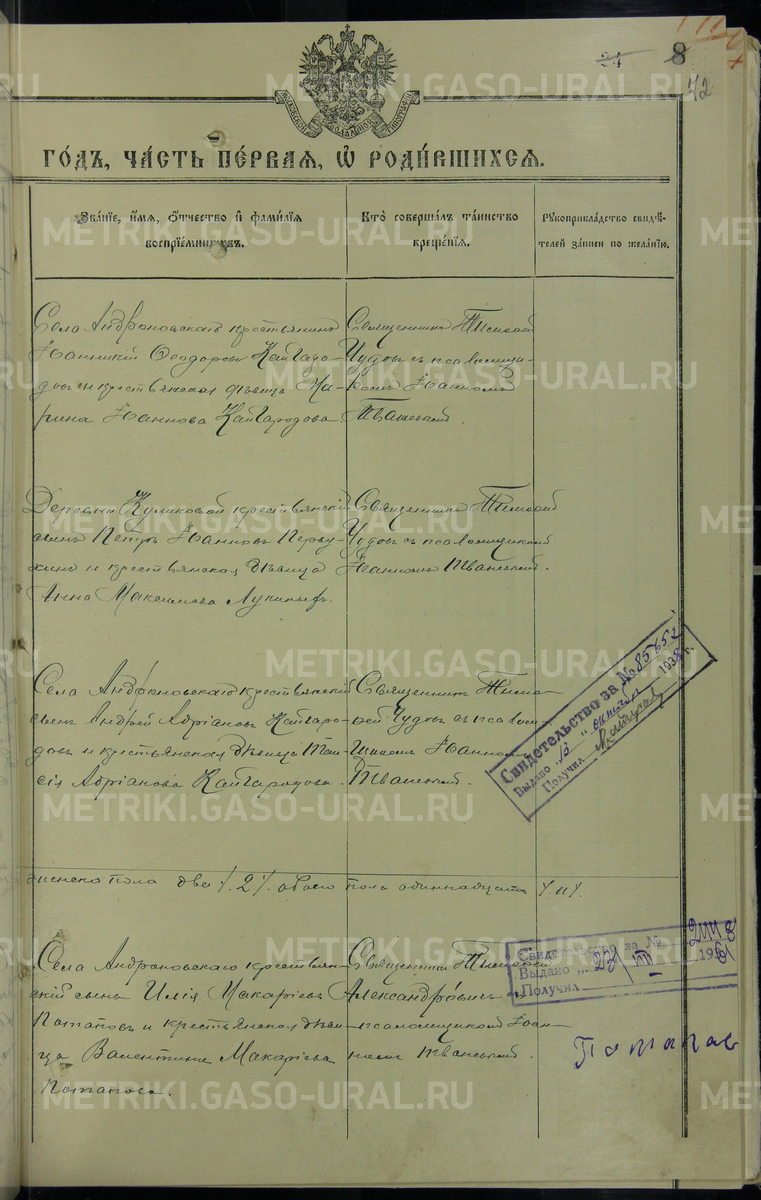 24 8
72
МОСКОВСКОЙ СѴНОДАЛЬНОЙ ТИПОГРАФІИ
ГО́ДЪ, ЧА́СТЬ ПЕ́РВАЯ, Ѡ҆ РОДИ́ВШИХСЯ.
Зва́ніе, и҆́мя, о҆́тчество и҆ фами́лія воспріе́мниковъ.
Кто̀ соверша́лъ та́инство креще́нія.
Рꙋкоприкла́дство свидѣ́телей за́писи по жела́нію.
Села Андроновскаго крестьянинъ
Іоанникій Ѳеодоровъ Кайгородовъ и крестьянская дѣвица
Іоаннова Кайгородова
Священникъ Тимоѳей
Чудовъ съ псаломщикомъ Іоанномъ
Тванскій.
Деревни Куликовой крестьянскій
сынъ Петръ Іоанновъ
и крестьянская дѣвица
Анна Максимова
Священникъ Тимоѳей
Чудовъ съ псаломщикомъ
Іоанномъ Тванскій.
Села Андроновскаго крестьянскій
сынъ Андрей Адріановъ Кайгородовъ и крестьянская дѣвица
Адріанова Кайгородова.
Священникъ Тимоѳей Чудовъ съ псаломщикомъ Іоанномъ
Тванскій.
Свидетельство за № 85652
Выдано 1938 г.
Получил
женска пола два /.2/. обоего пола одиннадцать /.11/.
Села Андроновскаго крестьянскій сынъ Илія Макаріевъ
Потаповъ и крестьянская дѣвица Валентина Макаріева
Потапова.
Священникъ
Александровичъ съ
псаломщикомъ Іоанномъ Тванскій.
Свидетельство за №
Выдано 23/VIII 1961
Получил
Потапов
METRIKI.GASO-URAL.RU